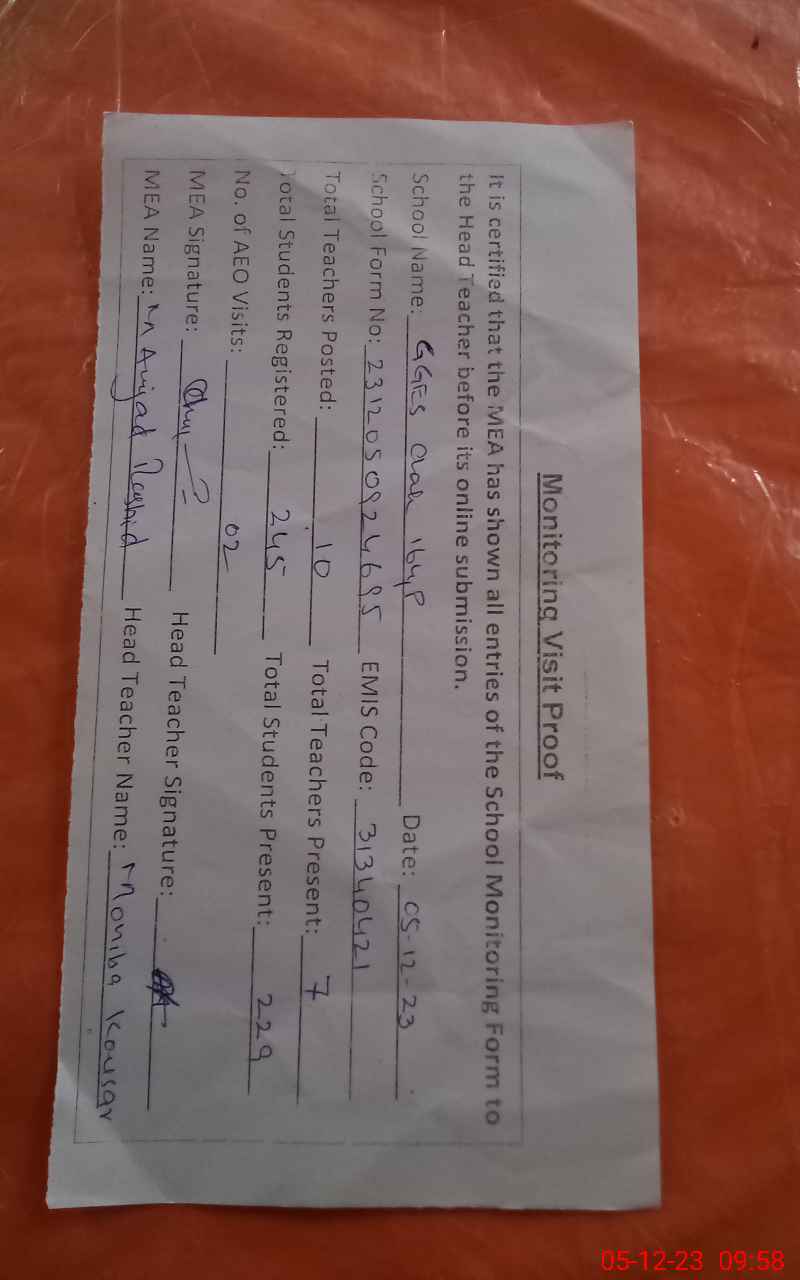 Monitoring Visit Proof
It is certified that the MEA has shown all entries of the School Monitoring Form to
the Head Teacher before its online submission.
School Name: GGES Chak 164P Date: 05-12-23
School Form No: 2312050924695 EMIS Code: 31340421
Total Teachers Posted: 10 Total Teachers Present: 7
Total Students Registered: 245 Total Students Present: 229
No. of AEO Visits: 02
MEA Signature: Head Teacher Signature:
MEA Name: M Amjad Rashid Head Teacher Name: Moniba Kousar
05-12-23 09:58